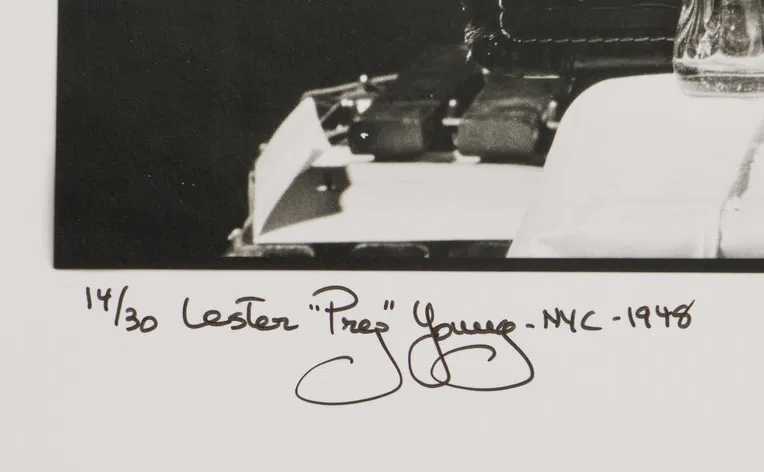 14/30 Lester "Prez" Young - NYC - 1948